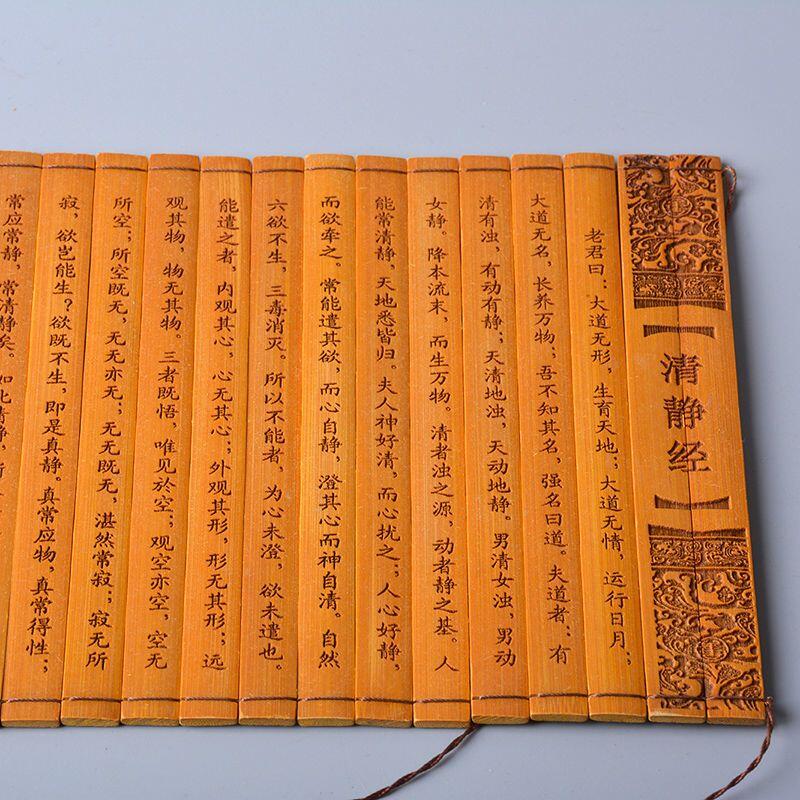 清静经
老君曰：大道无形，生育天地；大道无情，运行日月；
大道无名，长养万物；吾不知其名，强名曰道。夫道者：有
清有浊，有动有静；天清地浊，天动地静。男清女浊，男动
女静。降本流末，而生万物。清者浊之源，动者静之基。人
能常清静，天地悉皆归。夫人神好清，而心扰之；人心好静，
而欲牵之。常能遣其欲，而心自静，澄其心而神自清。自然
六欲不生，三毒消灭。所以不能者，为心未澄，欲未遣也。
能遣之者，内观其心，心无其心；外观其形，形无其形；远
观其物，物无其物。三者既悟，唯见於空；观空亦空，空无
所空；所空既无，无无亦无；无无既无，湛然常寂；寂无所
寂，欲岂能生？欲既不生，即是真静。真常应物，真常得性；
常应常静，常清静矣。如此清静，